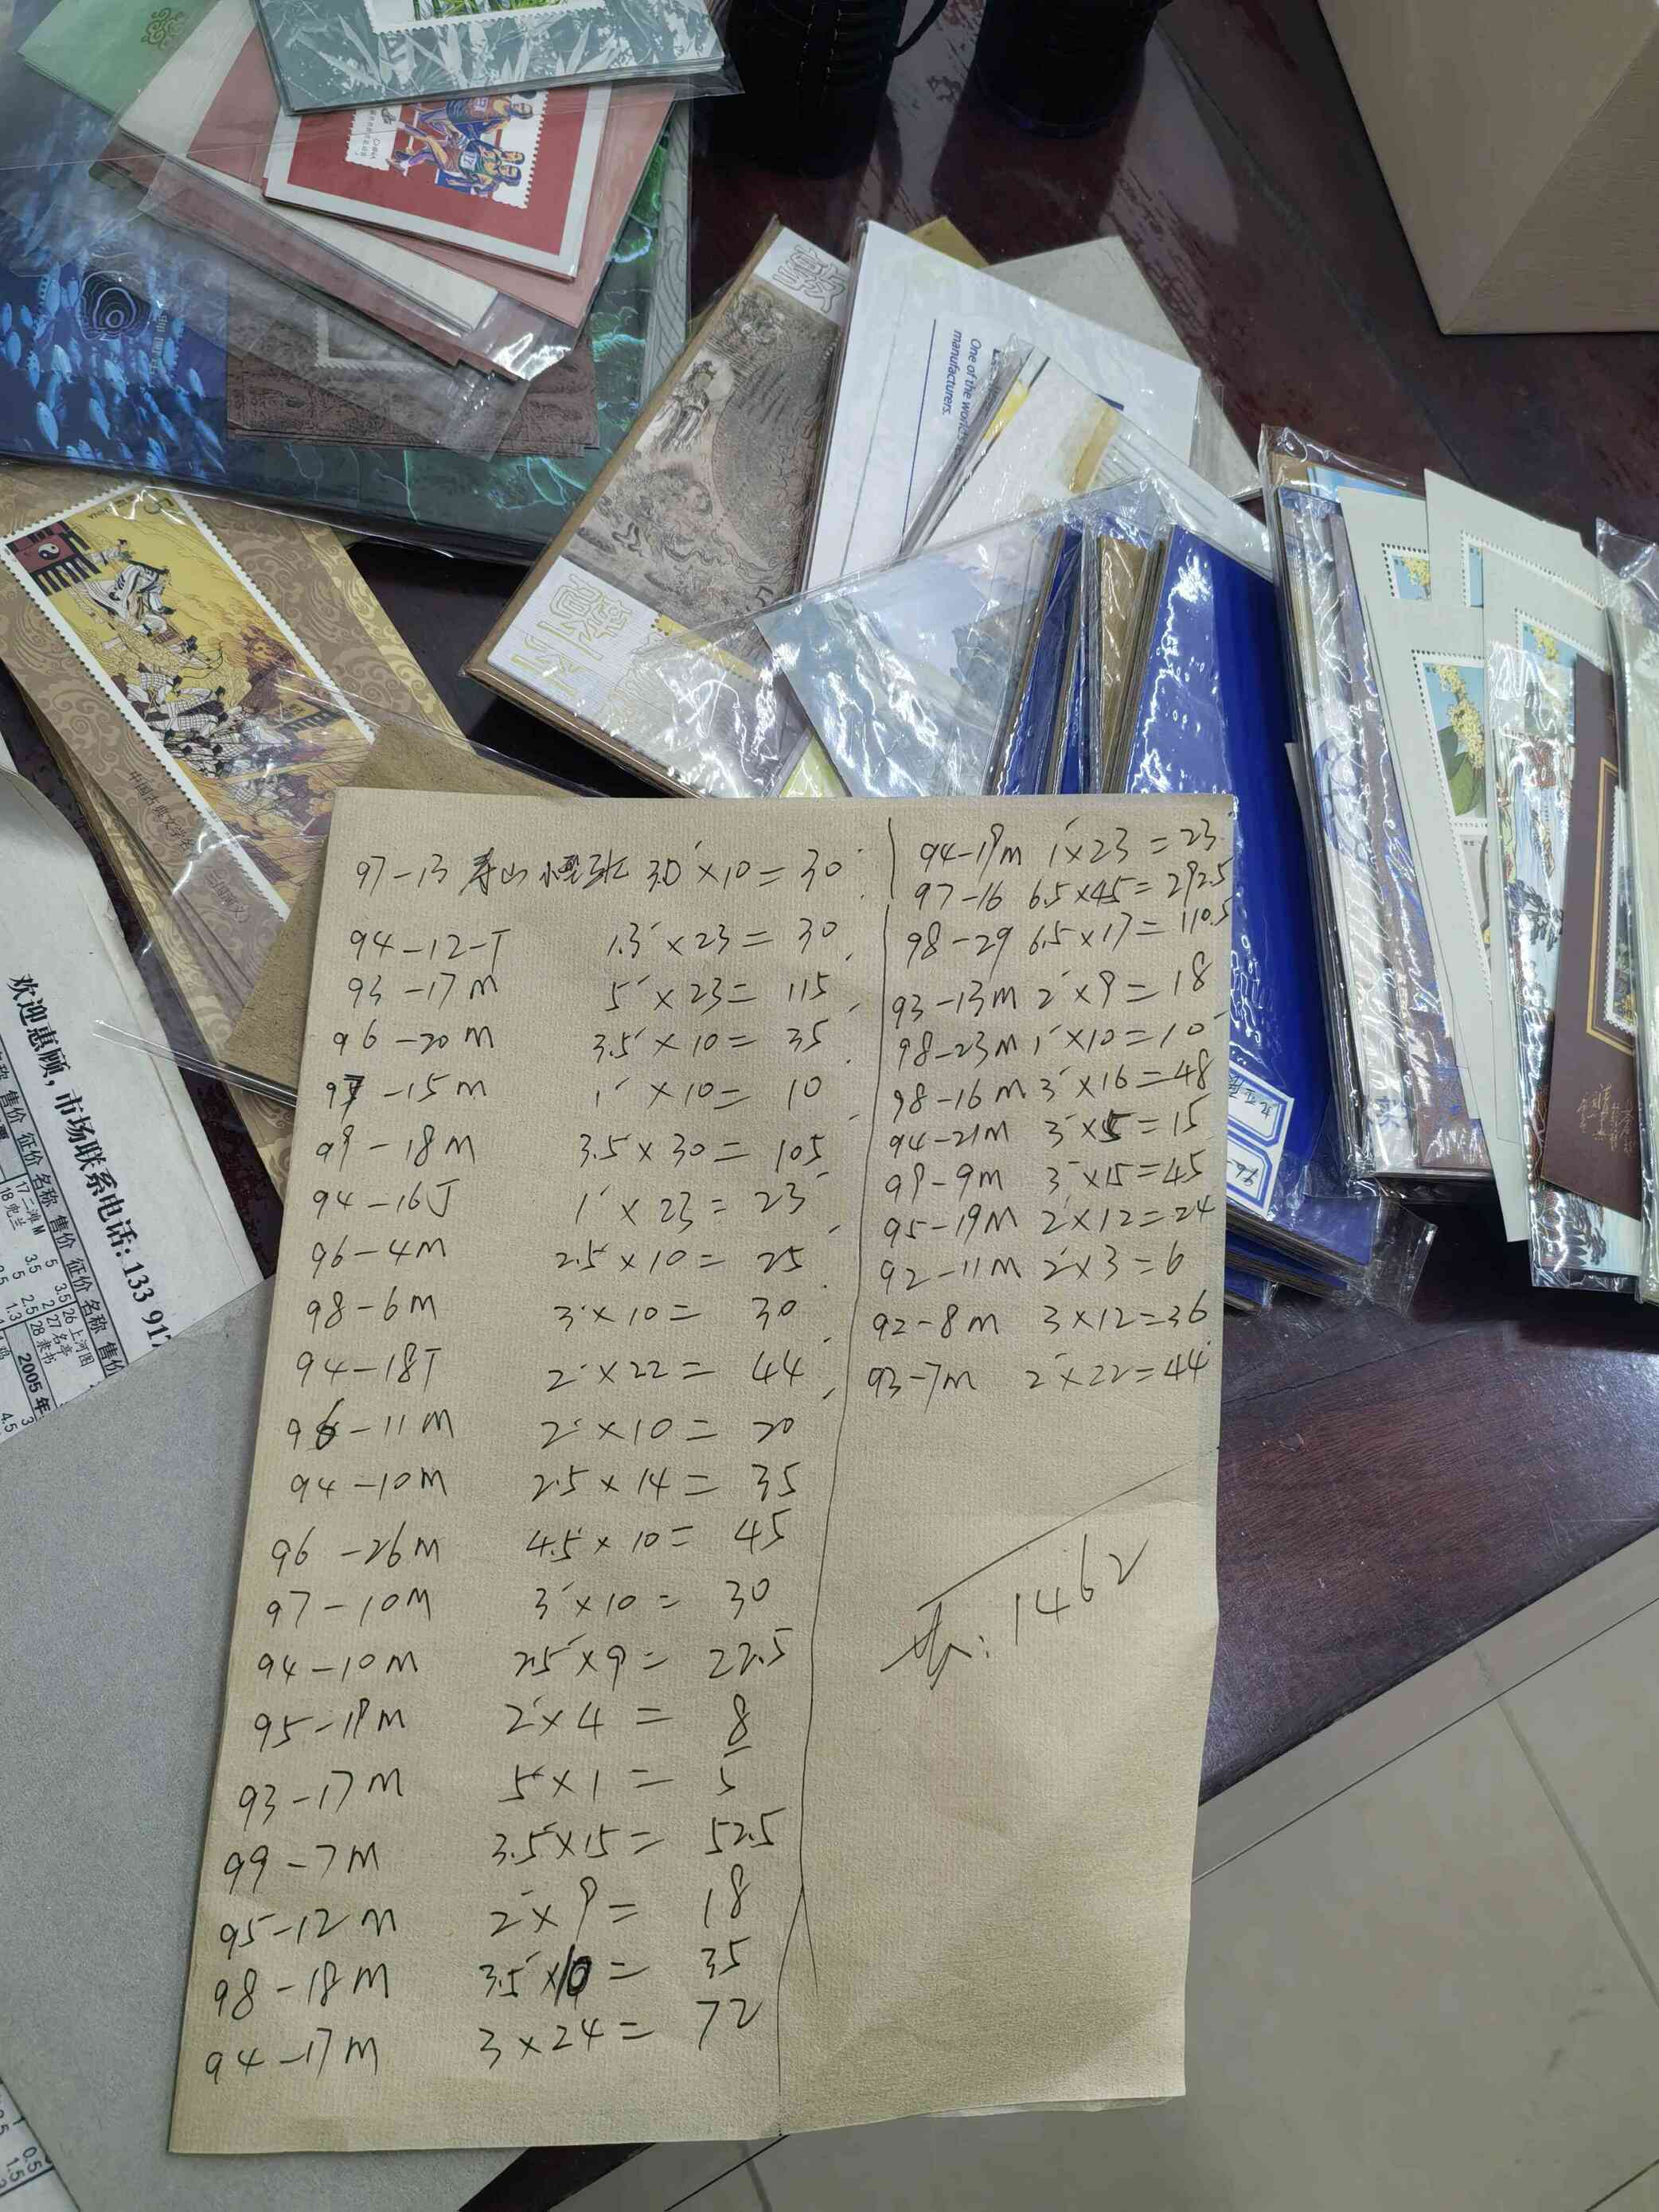 One of the world's
manufacturers.
中国古典文学名
三国演义
欢迎惠顾，市场联系电话：133 917
售价 征价 名称 售价 征价 名称 售价
17 二滩M 5 3.5 26 上河图
18 兜兰 3.5 2 27 名亭
5 2.5 28 隶书
1.3 2005年
97-13 寿山 小型张 3.0×10=30
94-12-T 1.3×23=30
93-17M 5×23=115
96-20M 3.5×10=35
97-15M 1×10=10
99-18M 3.5×30=105
94-16J 1×23=23
96-4M 2.5×10=25
98-6M 3×10=30
94-18T 2×22=44
96-11M 2×10=20
94-10M 2.5×14=35
96-26M 4.5×10=45
97-10M 3×10=30
94-10M 2.5×9=22.5
95-19M 2×4=8
93-17M 5×1=5
99-7M 3.5×15=52.5
95-12M 2×9=18
98-18M 3.5×10=35
94-17M 3×24=72
94-19M 1×23=23
97-16 6.5×45=292.5
98-29 6.5×17=110.5
93-13M 2×9=18
98-23M 1×10=10
98-16M 3×16=48
94-21M 3×5=15
99-9M 3×15=45
95-19M 2×12=24
92-11M 2×3=6
92-8M 3×12=36
93-7M 2×22=44
1462